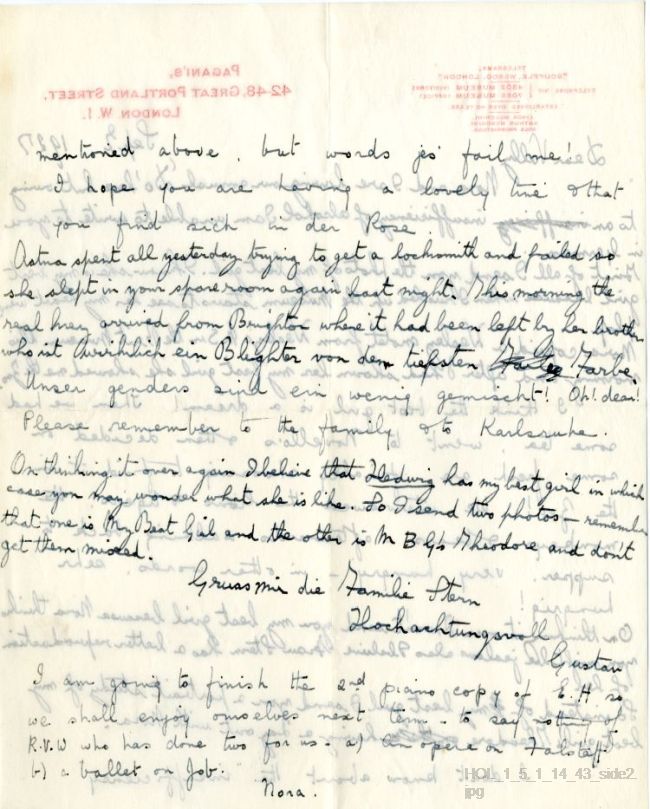 PAGANI'S,
42-48, GREAT PORTLAND STREET,
LONDON W. 1.
TELEGRAMS,
mentioned above, but words jes' fail me!
I hope you are having a lovely time & that
you find sich in der Rose.
Astra spent all yesterday trying to get a locksmith and failed so
she slept in your spare room again last night. This morning the
real key arrived from Brighton where it had been left by her brother
who ist wirklich ein Blighter von dem tiefsten Farbe.
Unser genders sind ein wenig gemischt! Oh! dear!
Please remember to the family & to Karlsruhe.
On thinking it over again I believe that Hedwig has my best girl in which
case you may wonder what she is like. So I send two photos – remember
that one is My Best Girl and the other is M B G's Theodore, and don't
get them mixed.
Gruss mir die Familie Stern
Hochachtungsvoll
Gustav
I am going to finish the 2nd piano copy of E.H. so
we shall enjoy ourselves next term - to say nothing of
R.V.W who has done two for us - a) An opera on Falstaff
b) a ballet on Job.
Nora.
HOL_1_5_1_14_43_side2.
jpg